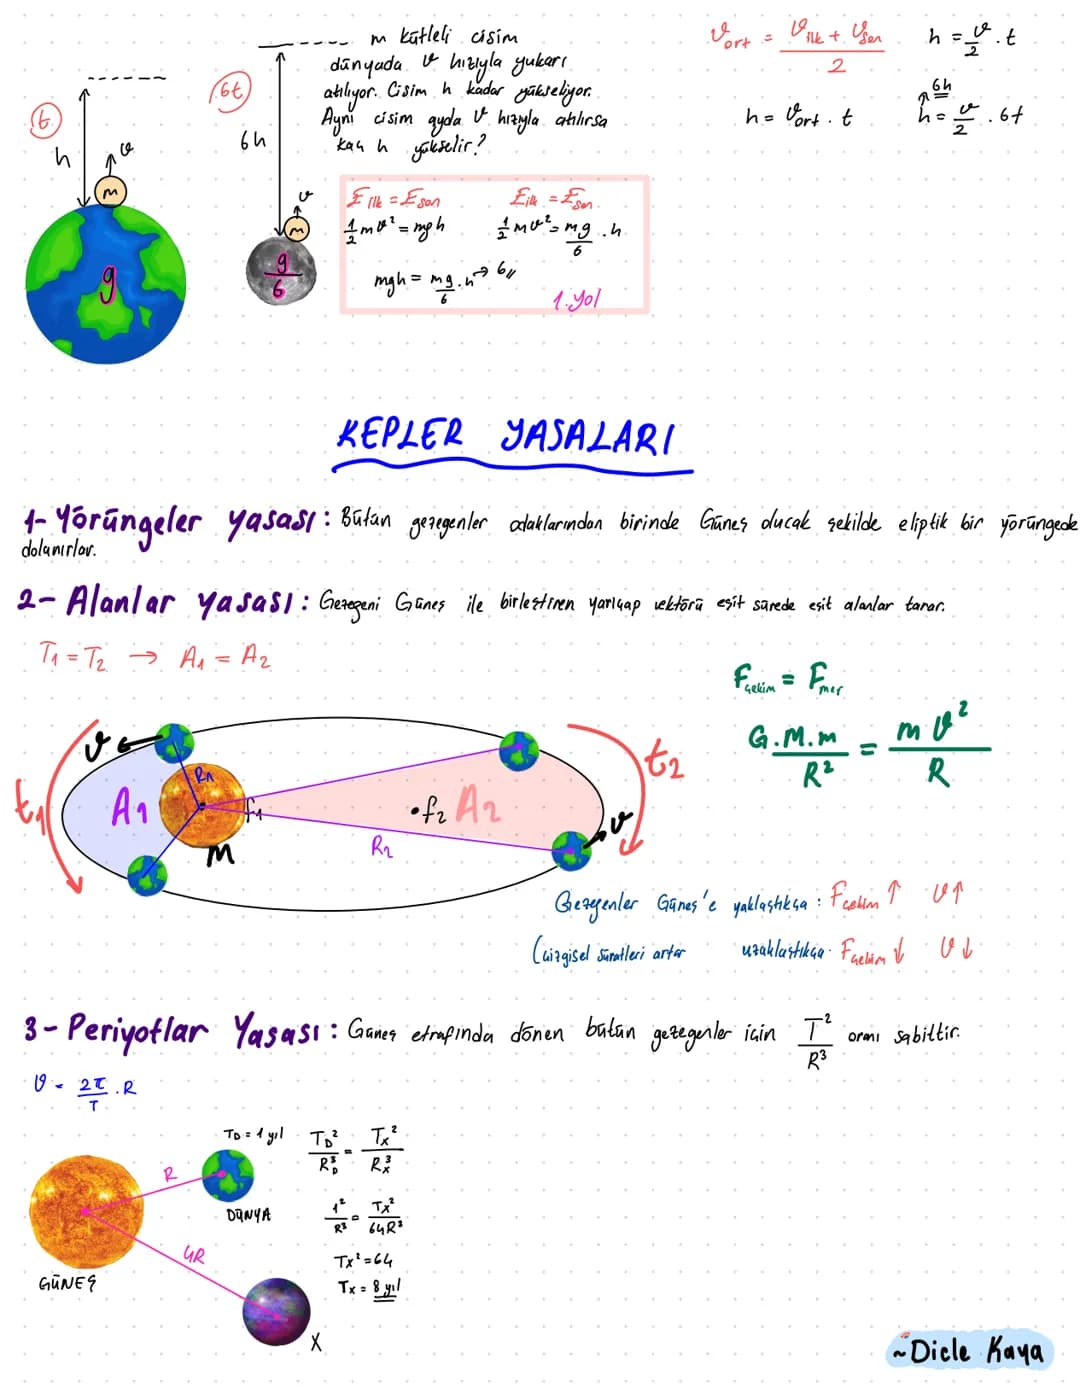 m kütleli cisim
dünyada v hızıyla yukarı
atılıyor. Cisim h kadar yükseliyor.
Aynı cisim ayda v hızıyla atılırsa
kaç h yükselir?
t
h
v
m
g
6t
6h
v
m
g/6
Eilk = Eson
1/2 mv² = mgh
Eilk = Eson
1/2 mv² = mg/6 . h
mgh = mg/6 . h → 6//
1.yol
Vort = Vilk + Vson / 2
h = Vort . t
h = v/2 . t
6h
h = v/2 . 6t
KEPLER YASALARI
1- Yörüngeler yasası: Bütün gezegenler odaklarından birinde Güneş olucak şekilde eliptik bir yörüngede
dolanırlar.
2- Alanlar yasası: Gezegeni Güneş ile birleştiren yarıçap vektörü eşit sürede eşit alanlar tarar.
T1 = T2 → A1 = A2
Fçekim = Fmer
G.M.m / R² = mv² / R
t1
v
A1
R1
f1
M
f2
A2
R2
v
t2
Gezegenler Güneş'e yaklaştıkça: Fçekim ↑ v↑
(çizgisel süratleri artar uzaklaştıkça. Fçekim ↓ v↓
3- Periyotlar Yasası: Güneş etrafında dönen bütün gezegenler için T²/R³ oranı sabittir.
v = 2π/T . R
TD = 1 yıl
R
DÜNYA
4R
GÜNEŞ
X
TD²/RD³ = Tx²/Rx³
1²/R³ = Tx²/64R³
Tx² = 64
Tx = 8 yıl
~Dicle Kaya